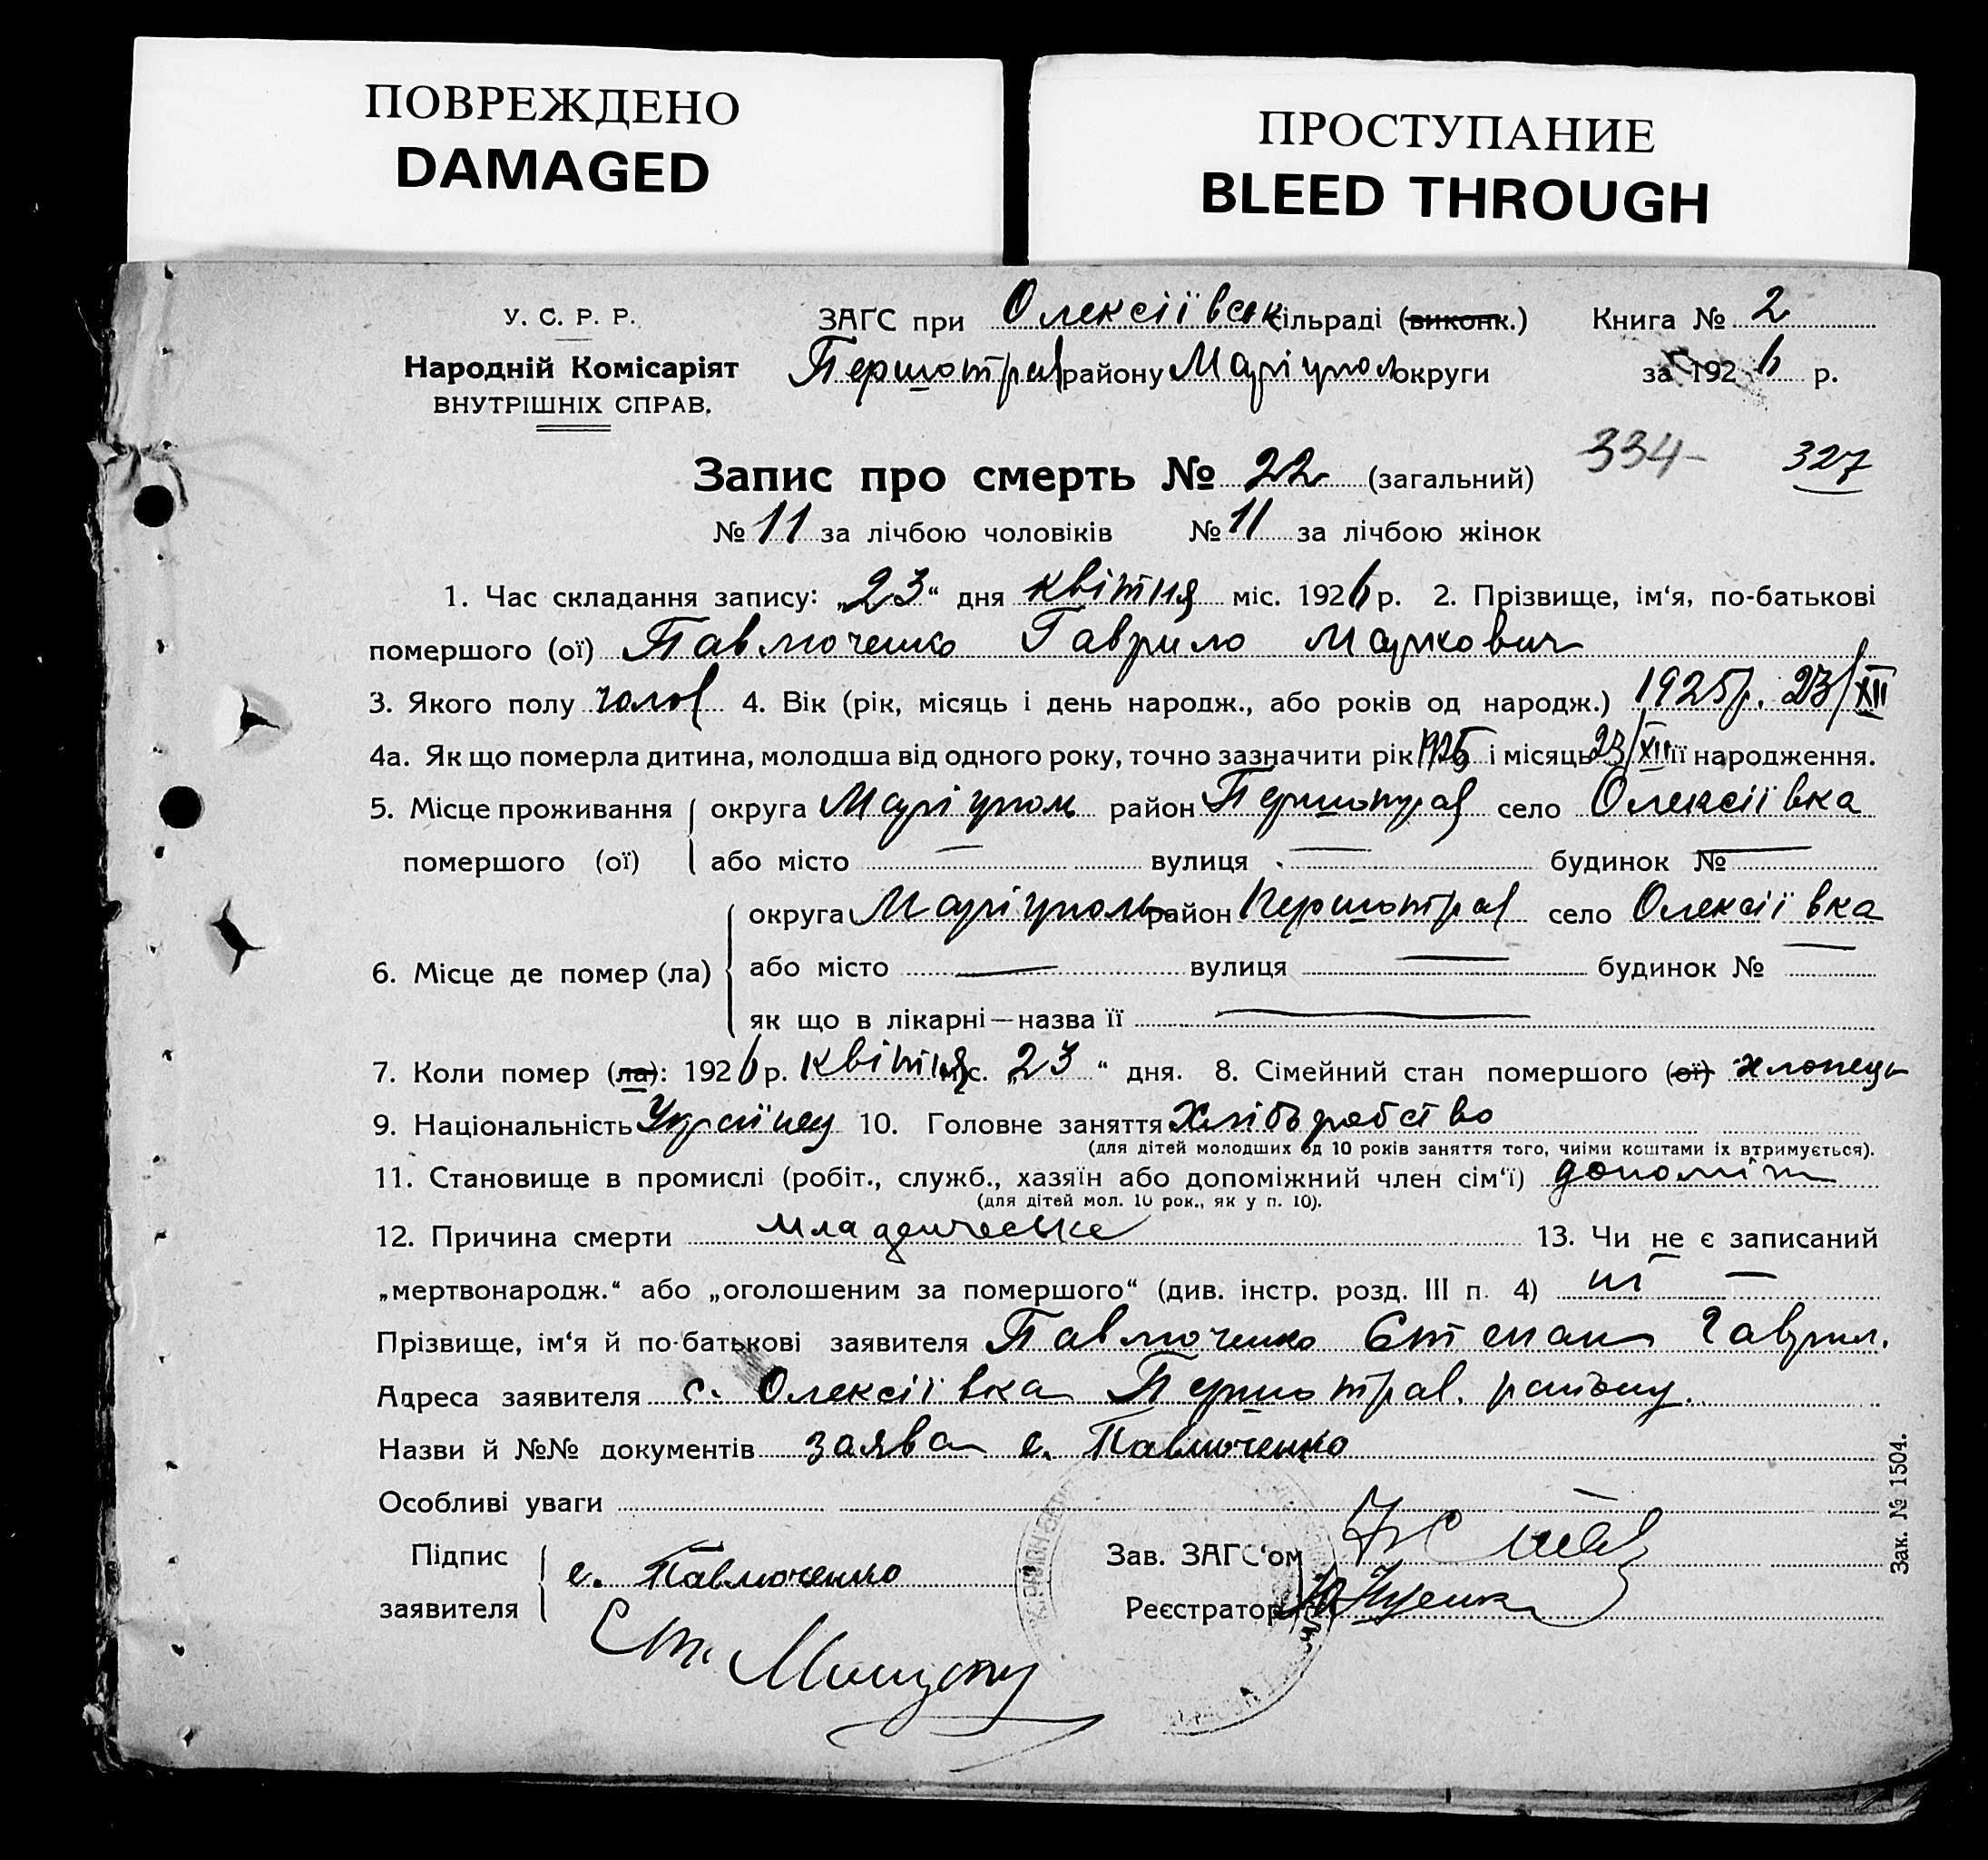 ПОВРЕЖДЕНО
DAMAGED
ПРОСТУПАНИЕ
BLEED THROUGH
У. С. Р. Р. ЗАГС при Олексіївськ сільраді (виконк.) Книга № 2
Народній Комісаріят Першотрав району Маріупол округи за 1926 р.
ВНУТРІШНІХ СПРАВ.
Запис про смерть № 22 (загальний) 334 327
№ 11 за лічбою чоловіків № 11 за лічбою жінок
1. Час складання запису: „23“ дня квітня міс. 1926 р. 2. Прізвище, ім‘я, по-батькові
помершого (ої) Павлюченко Гаврило Маркович
3. Якого полу чолов 4. Вік (рік, місяць і день народж., або років од народж.) 1925 р. 23/XII
4а. Як що померла дитина, молодша від одного року, точно зазначити рік 1925 і місяць 23/XII її народження.
5. Місце проживання округа Маріуполь район Першотрав село Олексіївка
помершого (ої) або місто — вулиця — будинок № —
округа Маріуполь район Першотрав село Олексіївка
6. Місце де помер (ла) або місто — вулиця — будинок № —
як що в лікарні—назва її —
7. Коли помер (ла): 1926 р. квітня міс. „23“ дня. 8. Сімейний стан помершого (ої) хлопець
9. Національність Українец 10. Головне заняття Хліборобство
(для дітей молодших од 10 років заняття того, чиїми коштами їх втримується).
11. Становище в промислі (робіт., служб., хазяїн або допоміжний член сім‘ї) допоміж
(для дітей мол. 10 рок., як у п. 10).
12. Причина смерти младенческе 13. Чи не є записаний
„мертвонародж.“ або „оголошеним за помершого“ (див. інстр. розд. III п. 4) ні —
Прізвище, ім‘я й по-батькові заявителя Павлюченко Степан Гаврил.
Адреса заявителя с. Олексіївка Першотрав. району.
Назви й №№ документів заява с. Павлюченко
Особливі уваги
Підпис с. Павлюченко Зав. ЗАГС‘ом
заявителя Реєстратор
Зак. № 1504.